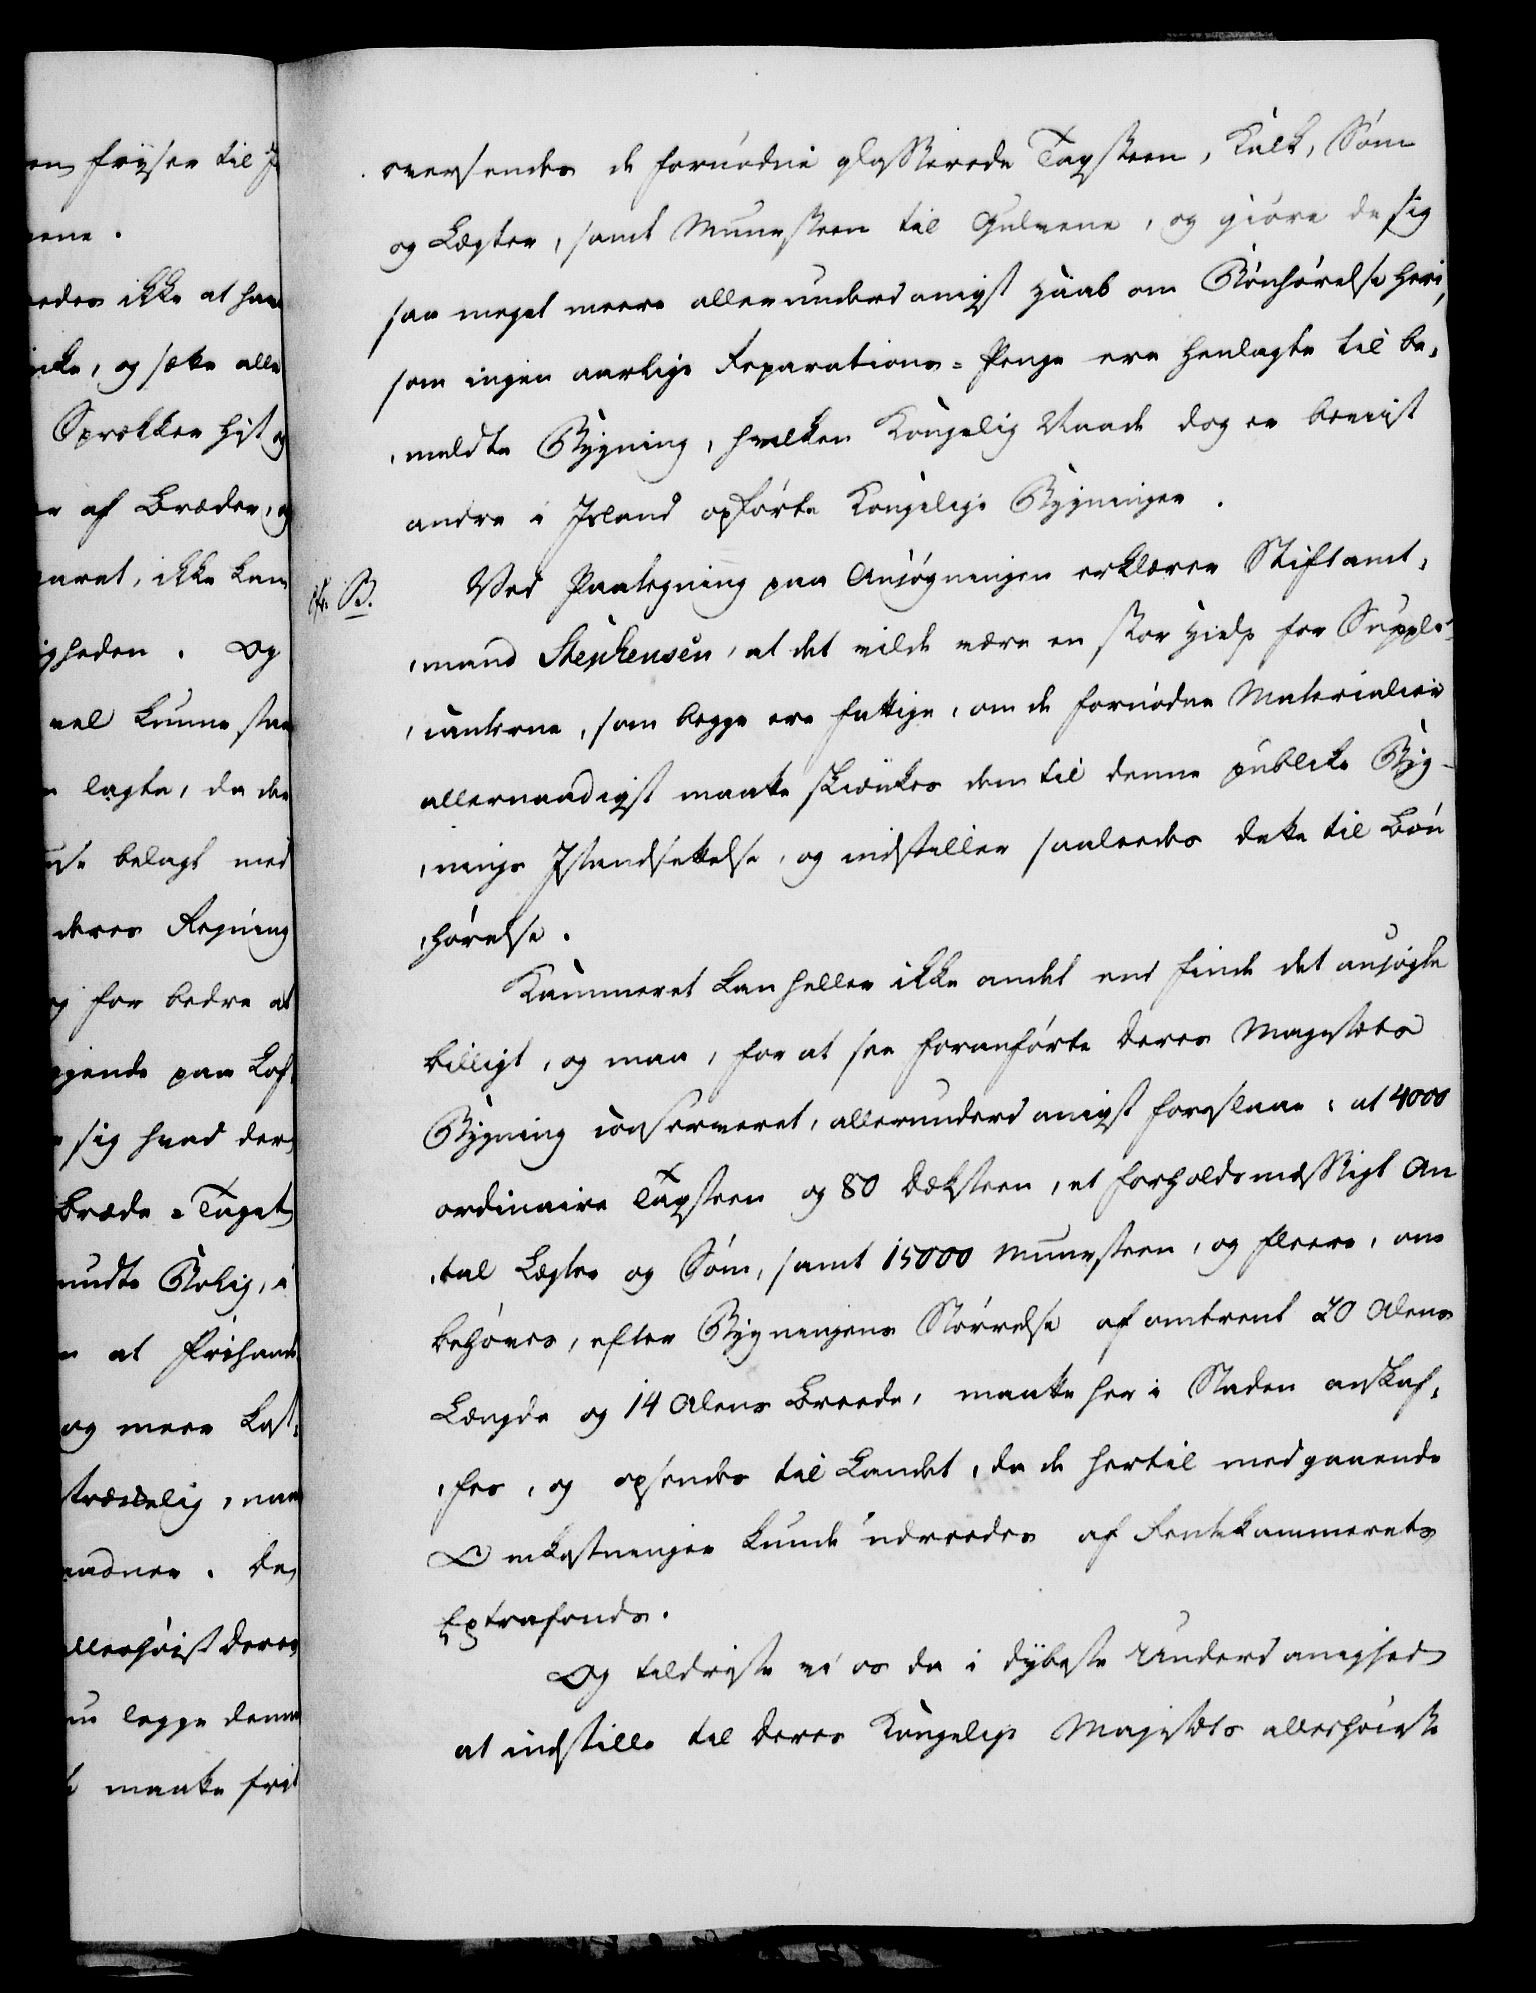 en fryser til J
nene.
edes ikke at have
ikke, og sætte alle
Sprækker hist og
r af Bræder, og
varet, ikke kan
igheden. Og
vel kunne staae
lagte, da den
belagt med
deres Regning
g for bedre at
gende paa Lof¸
sig hvad der
Bræde-Taget
undte Bolig, i
at Friisand
og meere kost¸
trækkelig, naar
aadner. De
allerhøist Deres
legge denne
maatte frit
oversendes de fornødne glasserede Tagsteen, Kalk, Søm
og Lægter, samt Muursteen til Gulvene, og giøre de sig
saa meget meere allerunderdanigst Haab om Bønhørelse heri,
som ingen aarlige Reparations-Penge ere henlagte til be¸
¸meldte Bygning, hvilken Kongelig Naade dog er beviist
andre i Island opførte Kongelige Bygninger.
cfr. B. Ved Paategning paa Ansøgningen erklærer Stiftamt¸
¸mand Stephensen, at det vilde være en stor Hielp for Suppli¸
¸canterne, som begge ere fattige, om de fornødne Materialier
allernaadigst maatte skiænkes dem til denne publike Byg¸
¸nings Istandsættelse, og indstiller saaledes dette til Bøn
¸hørelse.
Kammeret kan heller ikke andet end finde det ansøgte
billigt, og maa, for at see foranførte Deres Majestæts
Bygning conserveret, allerunderdanigst foreslaae: at 4000
ordinaire Tagsteen og 80 Dæksteen, et forholdsmæssigt An
¸tal Lægter og Søm, samt 15000 Muursteen, og fleere, om
behøves, efter Bygningens Størrelse af omtrent 20 Alens
Længde og 14 Alens Breede, maatte her i Staden anskaf¸
¸fes, og opsendes til Landet, da de hertil medgaaende
Omkostninger kunde udreedes af Rentekammerets
Extrafonds.
Og tildriste vi os da i dybeste Underdanighed
at indstille til Deres Kongelige Majestæts allerhøieste